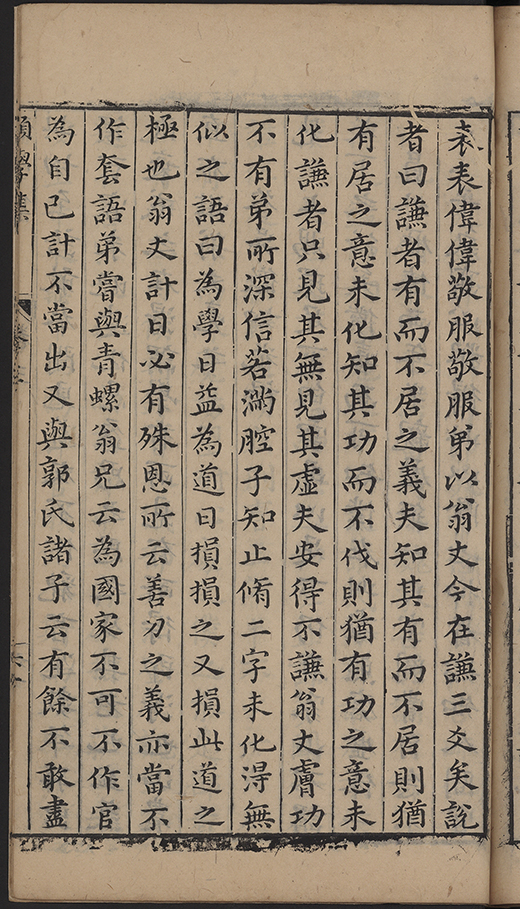 表表偉偉敬服敬服弟以翁丈今在謙三爻矣說
者曰謙者有而不居之義夫知其有而不居則猶
有居之意未化知其功而不伐則猶有功之意未
化謙者只見其無見其虛夫安得不謙翁丈膚功
不有弟所深信若滿腔子知止脩二字未化淂無
似之語曰為學日益為道日損損之又損此道之
極也翁丈計日必有殊恩所云善刀之義亦當不
作套語弟嘗與青螺翁兄云為國家不可不作官
為自己計不當出又與郭氏諸子云有餘不敢盡
學集